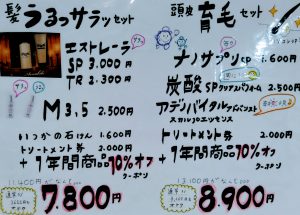 髪 うるっサラッ セット
エストレーラ
SP 3.000円
TR 2.300円
M3.5 2.500円
いつかの石けん 1.600円
トリートメント券 2.000円
+1年間商品10%オフ
クーポン
11.400円がなんと
7.800円
頭皮 育毛セット
ナノサプリ 1.600円
炭酸SP 2.500円
アデノバイタル
スカルプエッセンス
トリートメント券 2.000円
+1年間商品10%オフ
クーポン
13.100円がなんと
8.900円